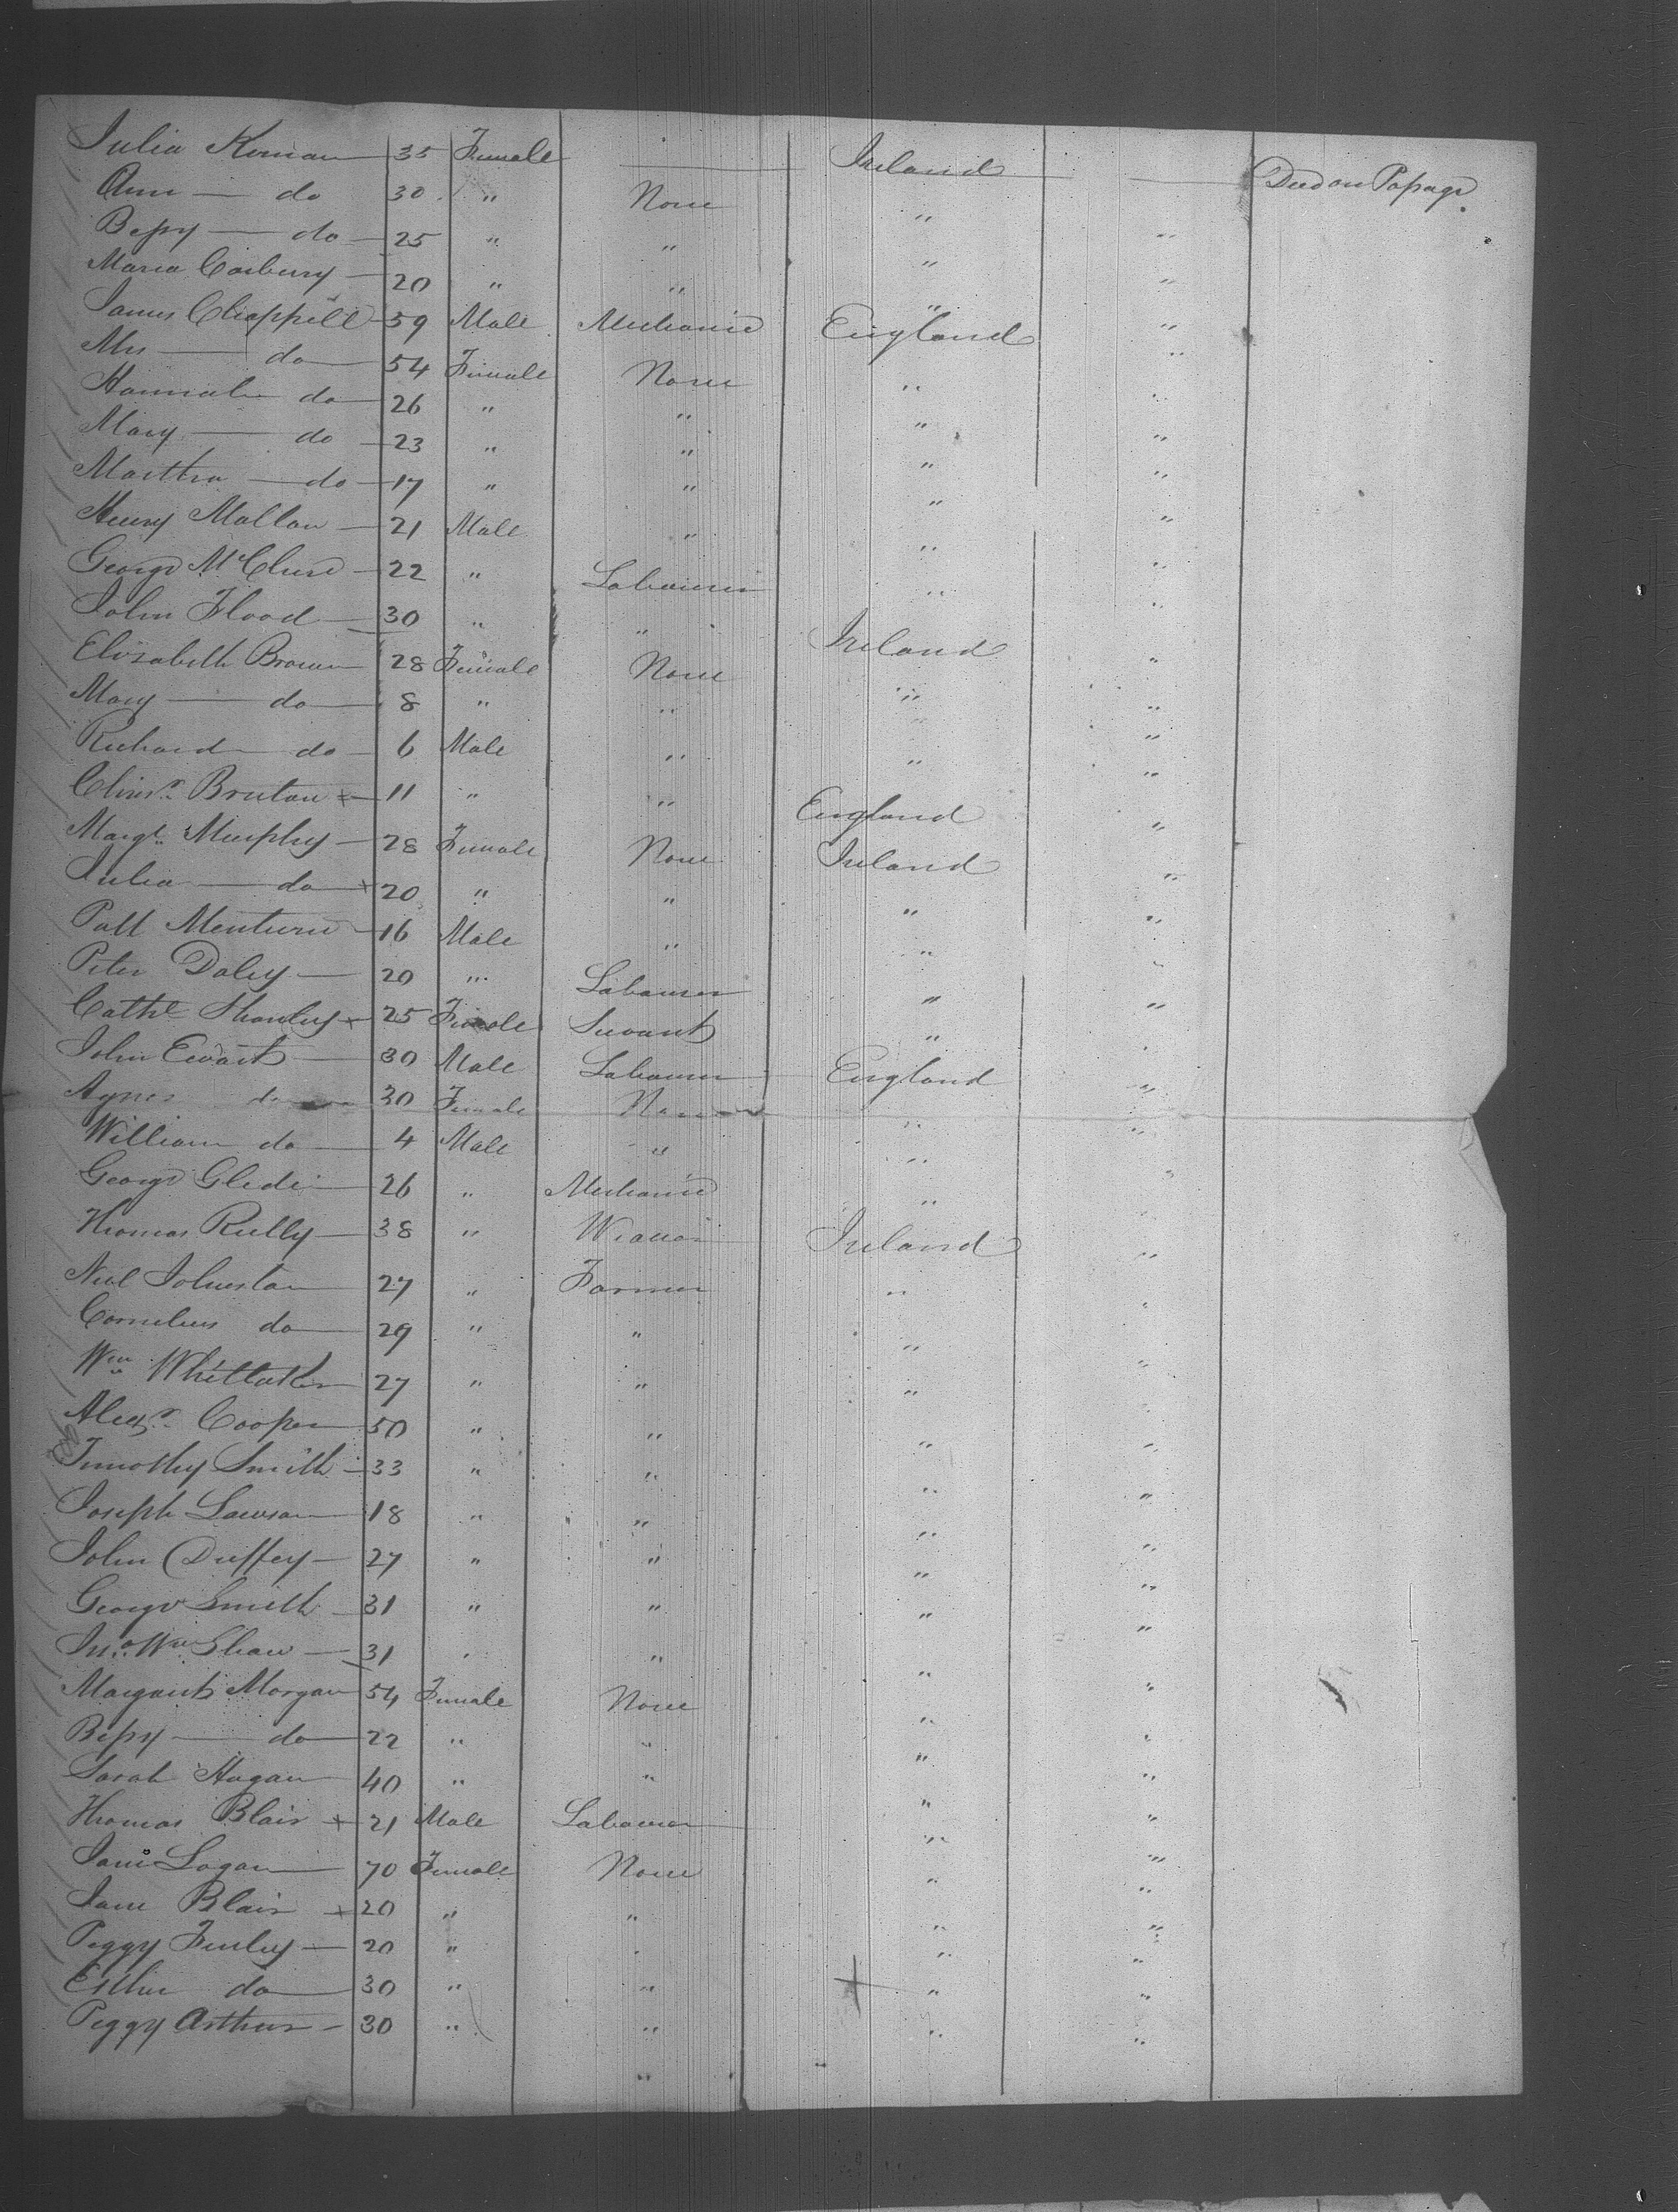 Julia Kernan — 35 Female — Ireland — Died on Passage
Ann — do 30 " None " "
Bessy — do — 25 " " " "
Maria Corbury — 20 " " " "
James Chappell — 39 Male Mechanic England "
Mrs — do — 54 Female None " "
Hannah do — 26 " " " "
Mary — do — 23 " " " "
Martha — do — 17 " " " "
Henry Mallan — 21 Male " " "
George McClure — 22 " Labourer " "
John Flood — 30 " " Ireland "
Elizabeth Brown 28 Female None " "
Mary — do — 8 " " " "
Richard do — 6 Male " " "
Chrisr. Bruton x — 11 " " England "
Margt. Murphy — 28 Female None Ireland "
Julia — do x 20 " " " "
Patt — 16 Male " " "
Peter Daley — 20 " Labourer " "
Cathe Shanley x 25 Female Servant " "
John Ewart — 30 Male Labourer England "
Agnes do — 30 Female None " "
William do — 4 Male " " "
George — 26 " Mechanic " "
Thomas Reilly — 38 " Weaver Ireland "
Neil Johnston 27 " Farmer " "
Cornelius do — 29 " " " "
Wm Whittaker 27 " " " "
Alexr. Cooper 50 " " " "
Timothy Smith — 33 " " " "
Joseph Lawson 18 " " " "
John Duffey — 27 " " " "
George Smith — 31 " " " "
Jno. Wm Shaw — 31 " " " "
Margaret Morgan 54 Female None " "
Bessy — do — 22 " " " "
Sarah Hagan 40 " " " "
Thomas Blair x 21 Male Labourer " "
Jane Logan — 70 Female None " "
Jane Blair x 20 " " " "
Peggy Finley — 20 " " " "
Esther do — 30 " " " "
Peggy Arthurs — 30 " " " "